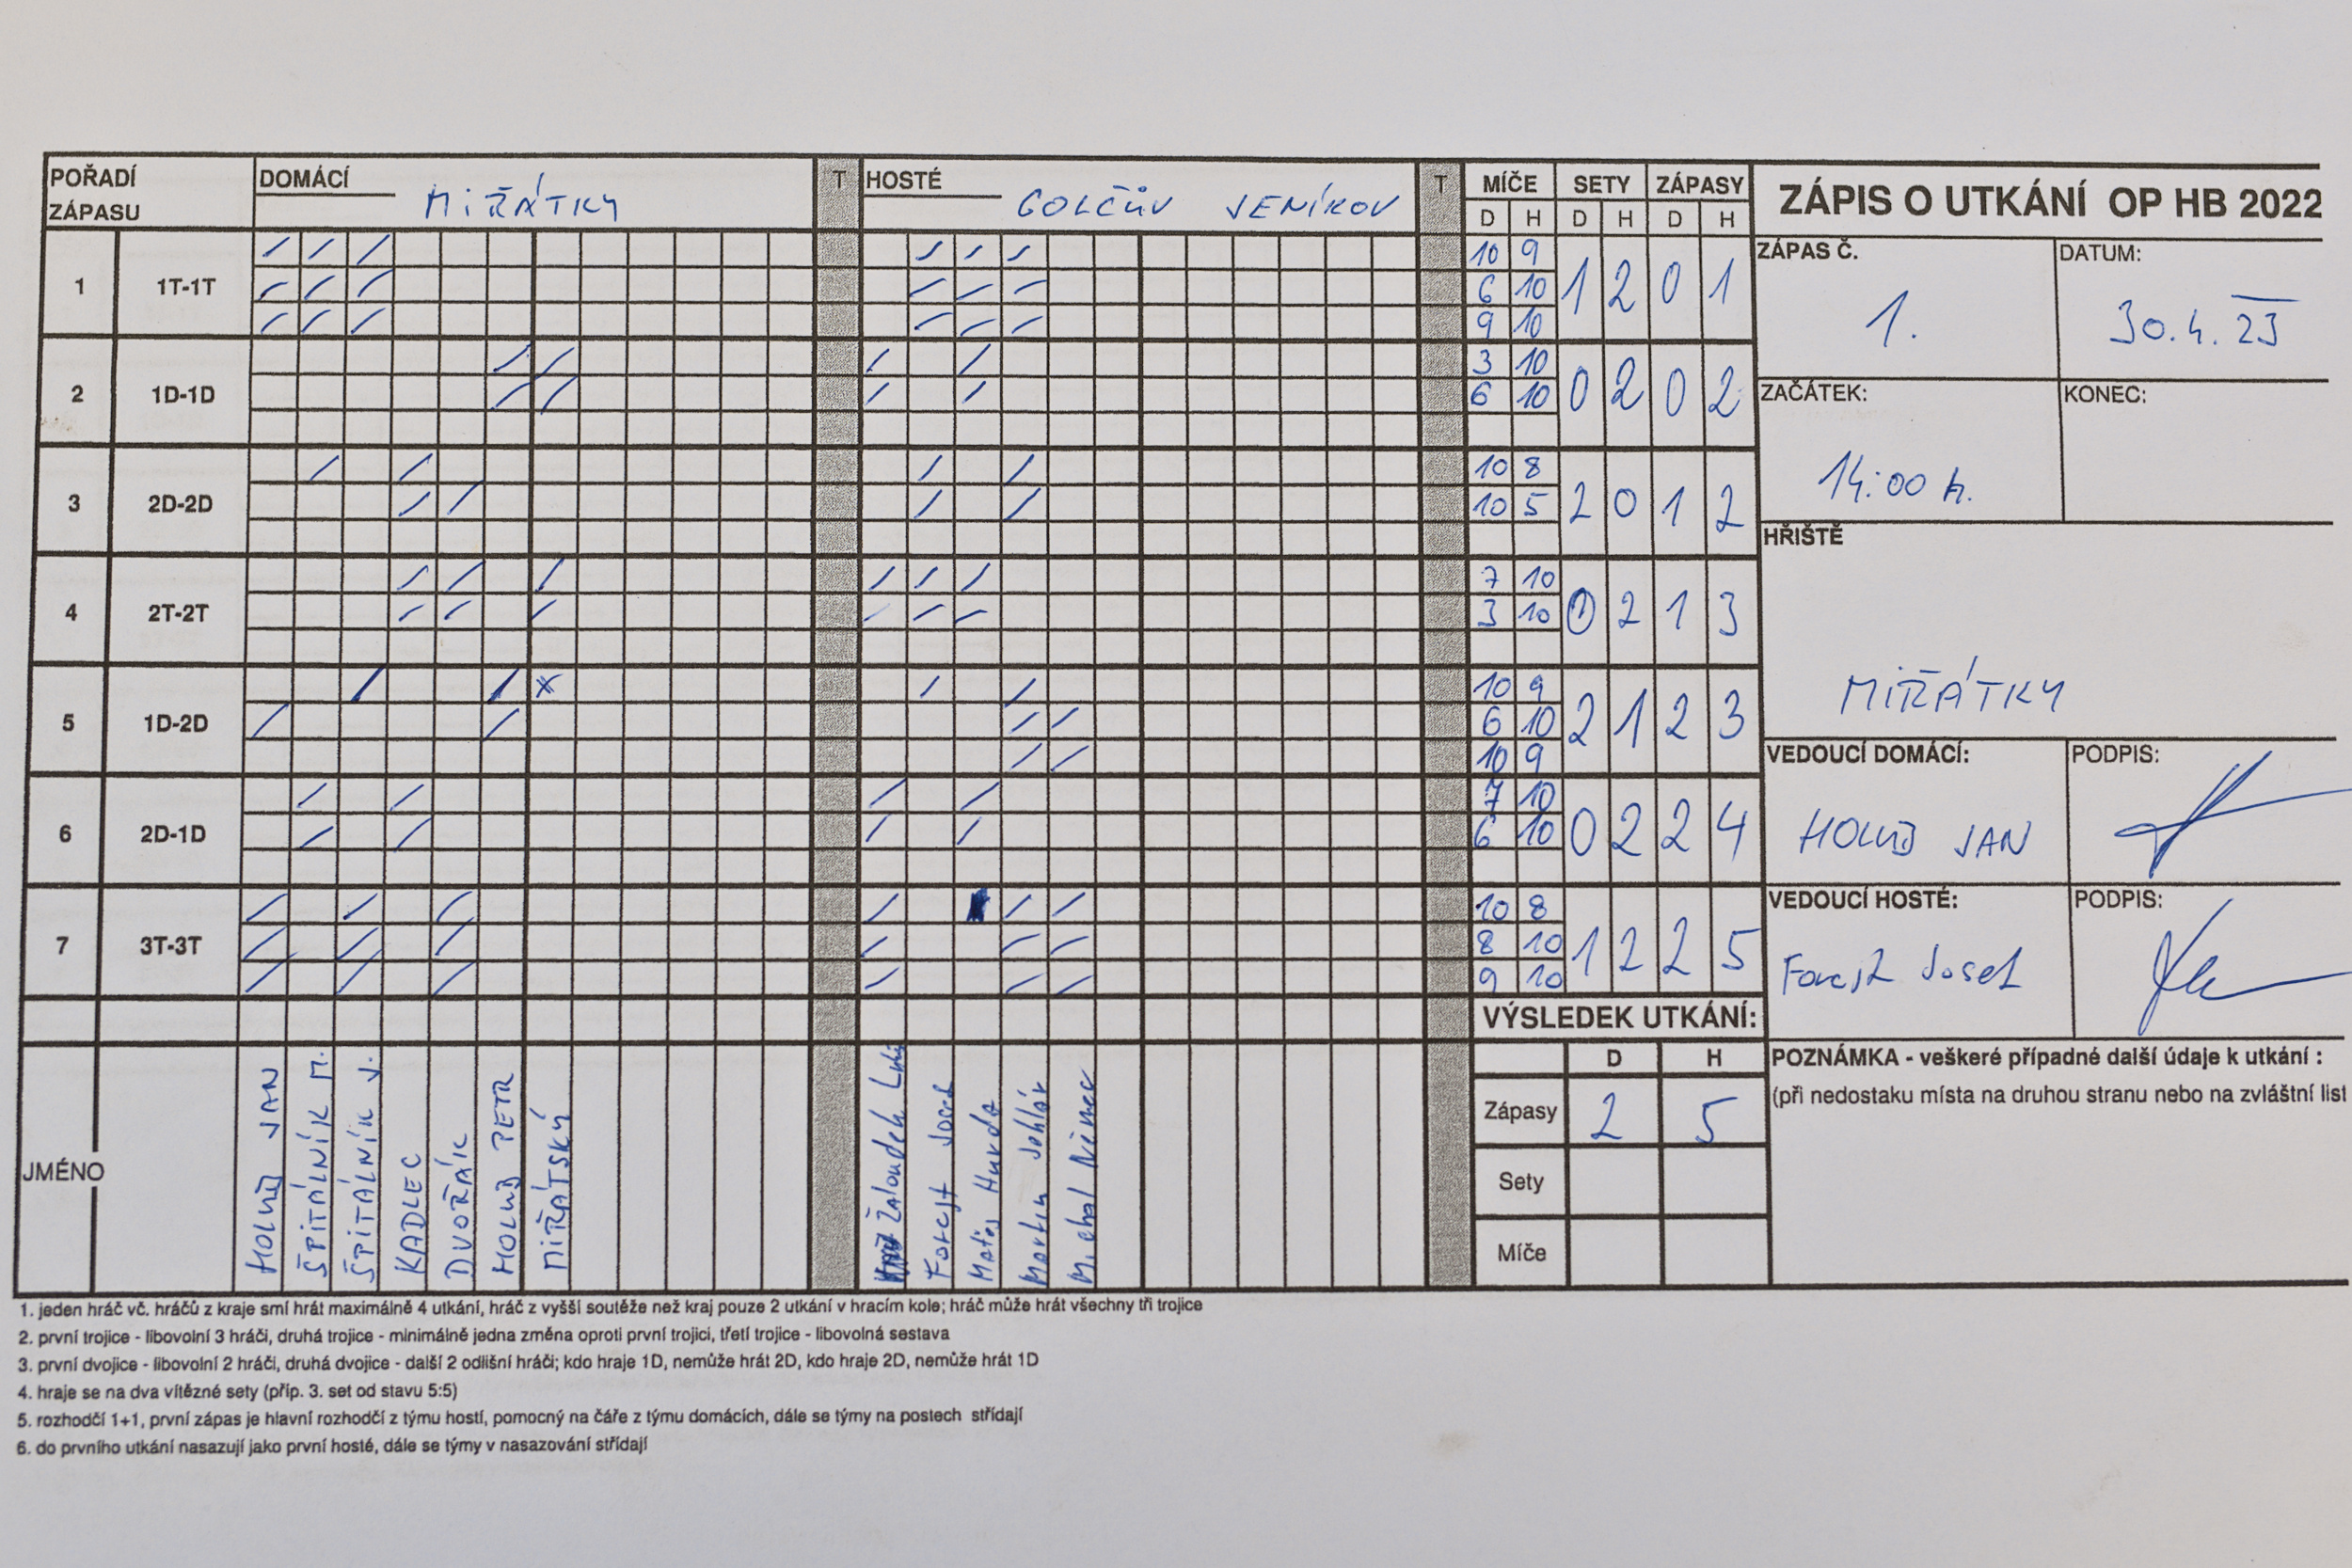 POŘADÍ ZÁPASU DOMÁCÍ MIŘÁTKY T HOSTÉ GOLČŮV JENÍKOV T MÍČE SETY ZÁPASY
D H D H D H
ZÁPIS O UTKÁNÍ OP HB 2022
1 1T-1T 10 9 1 2 0 1
6 10
9 10
2 1D-1D 3 10 0 2 0 2
6 10
3 2D-2D 10 8 2 0 1 2
10 5
4 2T-2T 7 10 0 2 1 3
3 10
5 1D-2D 10 9 2 1 2 3
6 10
10 9
6 2D-1D 7 10 0 2 2 4
6 10
7 3T-3T 10 8 1 2 2 5
8 10
9 10
ZÁPAS Č. 1.
DATUM: 30.4.23
ZAČÁTEK: 14:00 h.
KONEC:
HŘIŠTĚ
MIŘÁTKY
VEDOUCÍ DOMÁCÍ: PODPIS:
HOLUB JAN
VEDOUCÍ HOSTÉ: PODPIS:
Forejt Josef
VÝSLEDEK UTKÁNÍ:
D H
Zápasy 2 5
Sety
Míče
POZNÁMKA - veškeré případné další údaje k utkání :
(při nedostaku místa na druhou stranu nebo na zvláštní list
JMÉNO
HOLUB JAN
ŠPITÁLNÍK M.
ŠPITÁLNÍK J.
KADLEC
DVOŘÁK
HOLUB PETR
MIŘÁTSKÝ
Žaloudek
Forejt Josef
Matěj
Martin
Michal Němec
1. jeden hráč vč. hráčů z kraje smí hrát maximálně 4 utkání, hráč z vyšší soutěže než kraj pouze 2 utkání v hracím kole; hráč může hrát všechny tři trojice
2. první trojice - libovolní 3 hráči, druhá trojice - minimálně jedna změna oproti první trojici, třetí trojice - libovolná sestava
3. první dvojice - libovolní 2 hráči, druhá dvojice - další 2 odlišní hráči; kdo hraje 1D, nemůže hrát 2D, kdo hraje 2D, nemůže hrát 1D
4. hraje se na dva vítězné sety (příp. 3. set od stavu 5:5)
5. rozhodčí 1+1, první zápas je hlavní rozhodčí z týmu hostí, pomocný na čáře z týmu domácích, dále se týmy na postech střídají
6. do prvního utkání nasazují jako první hosté, dále se týmy v nasazování střídají